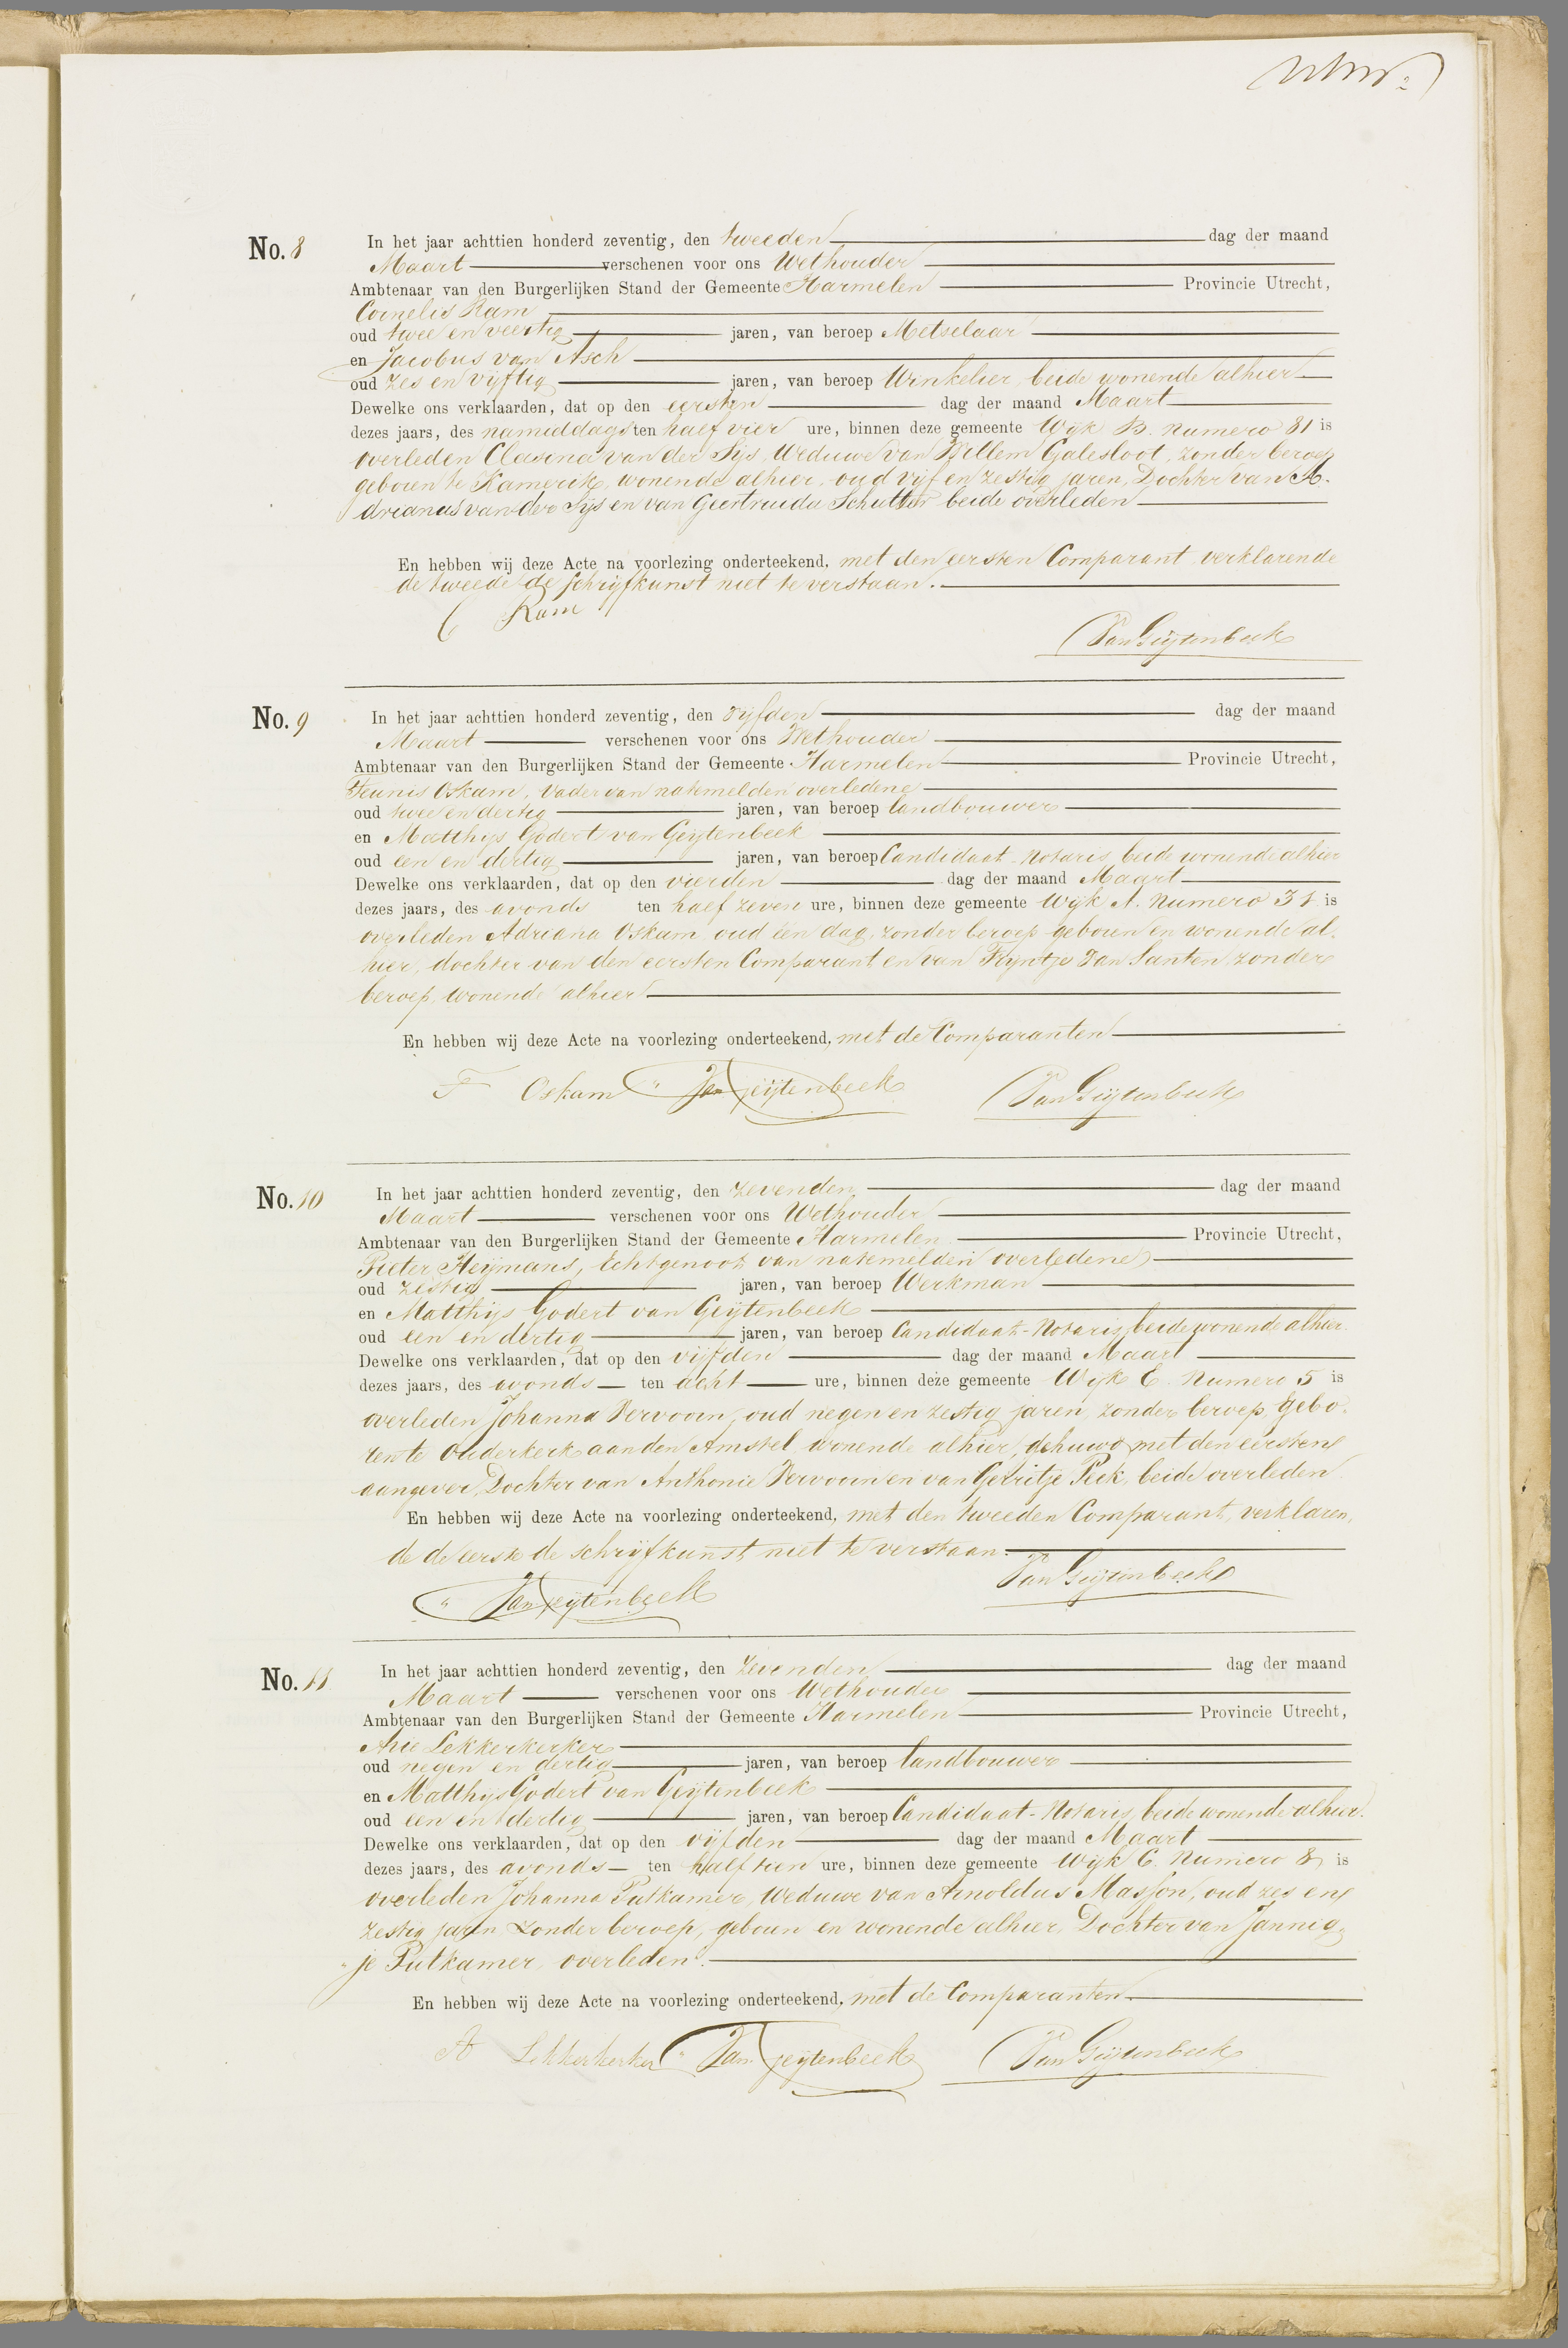 No. 8 In het jaar achttien honderd zeventig, den tweeden dag der maand
Maart verschenen voor ons Wethouder
Ambtenaar van den Burgerlijken Stand der Gemeente Harmelen Provincie Utrecht,
Cornelis Ram
oud twee en veertig jaren, van beroep Metselaar
en Jacobus van Asch
oud zes en vijftig jaren, van beroep Winkelier, beide wonende alhier
Dewelke ons verklaarden, dat op den eersten dag der maand Maart
dezes jaars, des namiddags ten half vier ure, binnen deze gemeente Wijk B. numero 81 is
overleden Clasina van der Sijs, Weduwe van Willem Galesloot, zonder beroep
geboren te Kamerik, wonende alhier, oud vijf en zestig jaren, Dochter van A-
drianus van der Sijs en van Geertruida Schutter beide overleden
En hebben wij deze Acte na voorlezing onderteekend, met den eersten Comparant verklarende
de tweede de schrijfkunst niet te verstaan.
C Ram
Van Geijtenbeek
No. 9 In het jaar achttien honderd zeventig, den vijfden dag der maand
Maart verschenen voor ons Wethouder
Ambtenaar van den Burgerlijken Stand der Gemeente Harmelen Provincie Utrecht,
Teunis Oskam, Vader van natemelden overledene
oud twee en dertig jaren, van beroep landbouwer
en Matthijs Godert van Geijtenbeek
oud een en dertig jaren, van beroep Candidaat-Notaris, beide wonende alhier
Dewelke ons verklaarden, dat op den vierden dag der maand Maart
dezes jaars, des avonds ten half zeven ure, binnen deze gemeente Wijk A. Numero is
overleden Adriana Oskam, oud één dag, zonder beroep geboren en wonende al-
hier, dochter van den eersten Comparant en van Fijntje van Santen zonder
beroep, wonende alhier
En hebben wij deze Acte na voorlezing onderteekend, met de Comparanten
T Oskam Van Geijtenbeek Van Geijtenbeek
No. 10 In het jaar achttien honderd zeventig, den zevenden dag der maand
Maart verschenen voor ons Wethouder
Ambtenaar van den Burgerlijken Stand der Gemeente Harmelen Provincie Utrecht,
Pieter Heijmans, Echtgenoot van natemelden overledene
oud zestig jaren, van beroep Werkman
en Matthijs Godert van Geijtenbeek
oud een en dertig jaren, van beroep Candidaat-Notaris, beide wonende alhier.
Dewelke ons verklaarden, dat op den vijfden dag der maand Maart
dezes jaars, des avonds ten acht ure, binnen deze gemeente Wijk C. Numero 5 is
overleden Johanna Vervoorn, oud negen en zestig jaren, zonder beroep, gebo-
ren te Ouderkerk aan den Amstel, wonende alhier, gehuwd met den eersten
aangever, Dochter van Anthonie Vervoorn en van Gerritje Piek, beide overleden
En hebben wij deze Acte na voorlezing onderteekend, met den tweeden Comparant, verklaren-
de de eerste de schrijfkunst niet te verstaan.
Van Geijtenbeek Van Geijtenbeek
No. 11 In het jaar achttien honderd zeventig, den zevenden dag der maand
Maart verschenen voor ons Wethouder
Ambtenaar van den Burgerlijken Stand der Gemeente Harmelen Provincie Utrecht,
Arie Lekkerkerker
oud negen en dertig jaren, van beroep landbouwer
en Matthijs Godert van Geijtenbeek
oud een en dertig jaren, van beroep Candidaat-Notaris, beide wonende alhier.
Dewelke ons verklaarden, dat op den vijfden dag der maand Maart
dezes jaars, des avonds ten half tien ure, binnen deze gemeente Wijk C. Numero 8 is
overleden Johanna Putkamer, Weduwe van Arnoldus Masson, oud zes en
zestig jaren, zonder beroep, geboren en wonende alhier, Dochter van Jannig-
je Putkamer, overleden.
En hebben wij deze Acte na voorlezing onderteekend, met de Comparanten
A Lekkerkerker Van Geijtenbeek Van Geijtenbeek